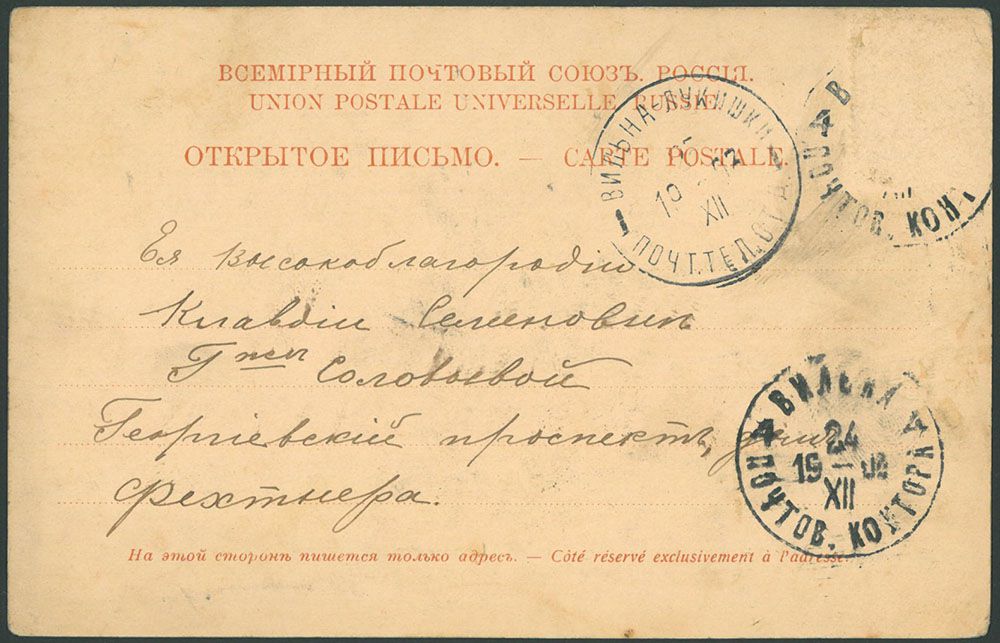 ВСЕМІРНЫЙ ПОЧТОВЫЙ СОЮЗЪ. РОССІЯ.
UNION POSTALE UNIVERSELLE. RUSSIE.
ОТКРЫТОЕ ПИСЬМО. — CARTE POSTALE.
ВИЛЬНА-ЛУКИШКИ
19 XII
ПОЧТ.ТЕЛ.ОТД.
4 В
ПОЧТОВ. КОН
Ея Высокоблагородію
Клавдіи Семеновнѣ
Гжѣ Соловьевой
Георгіевскій проспектъ, домъ
Фехтнера.
4 ВИЛЬНА 4
24
19 02
XII
ПОЧТОВ. КОНТОРА
На этой сторонѣ пишется только адресъ. — Côté réservé exclusivement à l'adresse.